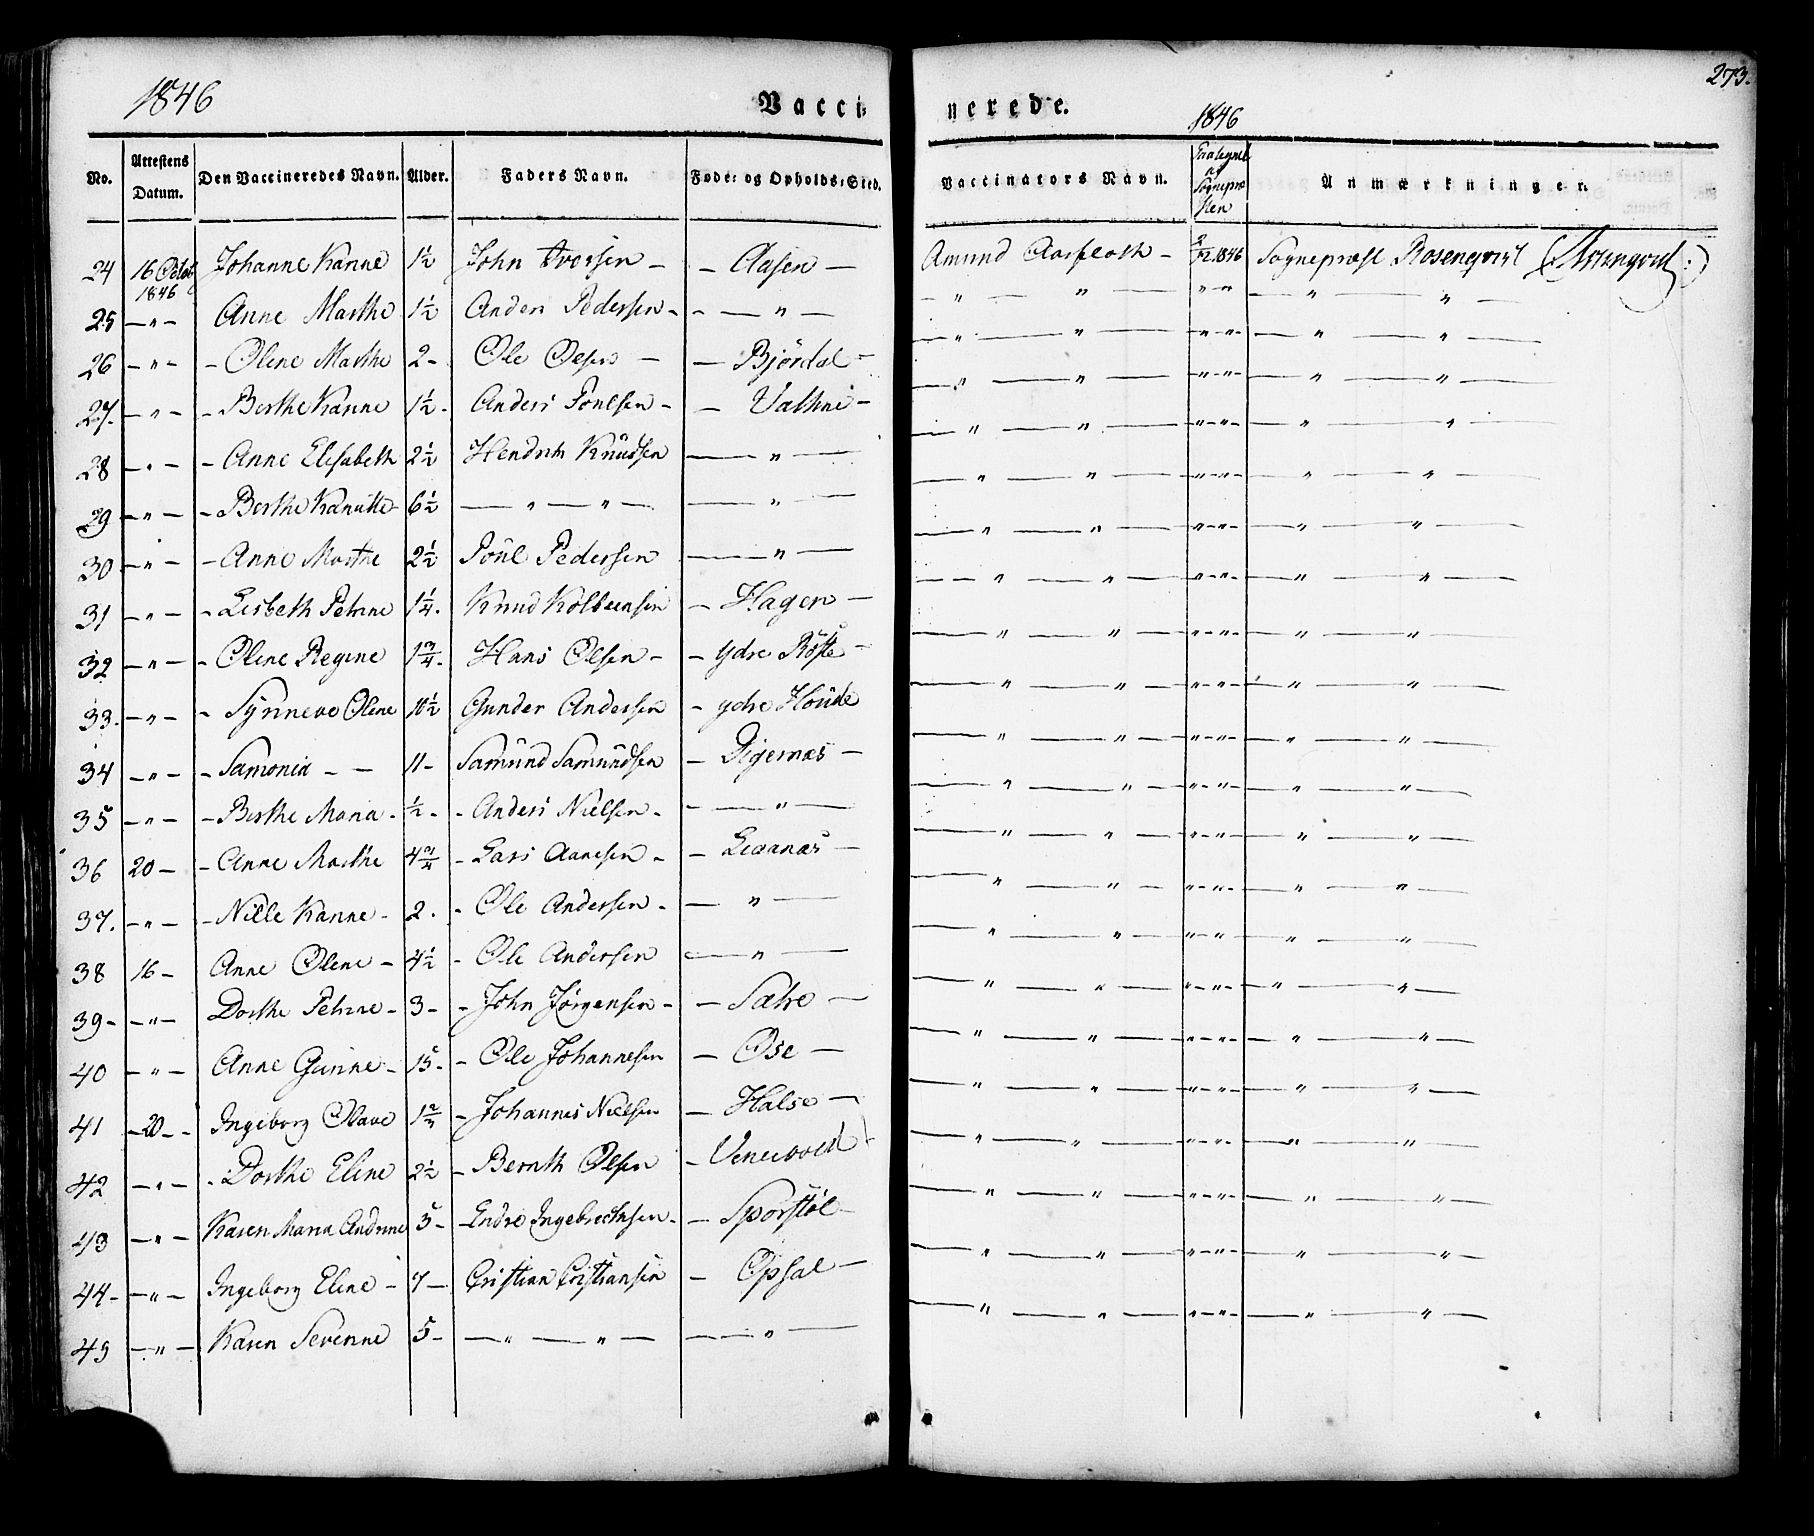 1846 Vaccinerede. 1846 273.
No. Attestens Datum. Den Vaccineredes Navn. Alder. Faders Navn. Føde- og Opholds-Sted. Vaccinators Navn. Anmærkninger.
24 16 Octob 1846 Johanne Hanne 1½ John Iversen – – Aasen – Amund Aarfloth – 2/12 1846 Sognepræst Rosenqvist (Rosenqvist:)
25 – " – Anne Marthe 1½ Anders Pedersen – – — " — – " — " — " " — " — " —
26 – " – – Olene Marthe 2 – Ole Olsen — — Bjørdal – – " — " — " " — " — " —
27. – " – – Berthe Hanne 1½ – Anders Poulsen – – Vatne – — " — " — " " — " — " —
28 – " – – Anne Elisabeth 2½ Hendrik Knudsen — " — — " — " — " " — " — " —
29 – " – – Berthe Kanutte – 6½ — " — " — — " — — " — " — " " — " — " —
30 – " – – Anne Marthe 2½ Poul Pedersen — " — — " — " — " " — " — " —
31 – " – – Lisbeth Petrine 1¼. Knud Kolbeensen – Hagen – — " — " — " " — " — " —
32 – " – – Oline Regine 1¾. Hans Olsen – – Ydre – — " — " — " " — " — " —
33. – " – – Synneve Oline 10½ Gunder Andersen – ydre — " — " — " " — " — " —
34 – " – – Samonia – – 11 – Samund Samundsen – Digernæs – — " — " — " " — " — " —
35 – " – – Berthe Maria – ½ – – Anders Nielsen – — " — — " — " — " " — " — " —
36 20 – – Anne Marthe 4¾ – Lars Aanesen – – Leernæs – — " — " — " " — " — " —
37. – " – – Nille Hanne – 2. – Ole Andersen – — " — — " — " — " " — " — " —
38 16 – Anne Oline – 4½ – Ole Andersen — " — — " — " — " " — " — " —
39 – – " – Dorthe Petrine – 3 – – John Jørgensen – – Sætre – — " — " — " " — " — " —
40 – " – Anne Gurine – 15 – – Ole Johannesen – Ose – — " — " — " " — " — " —
41 – 20 – – Ingeborg Olave 1⅔ – Johannes Nielsen – Halse – — " — " — " " — " — " —
42 – " – – Dorthe Eline 2½ – Bernth Olsen – — " — " — " " — " — " —
43 – " – Karen Maria Andrine 5 – – Endre Ingebrethsen – – Sporstøl – — " — " — " " — " — " —
44 – – " – Ingeborg Eline – 7 – Cristian Cristiansen – Opsal – — " — " — " " — " — " —
45 – " – Karen Severine 5 – — " — " — — " — — " — " — " " — " — " —